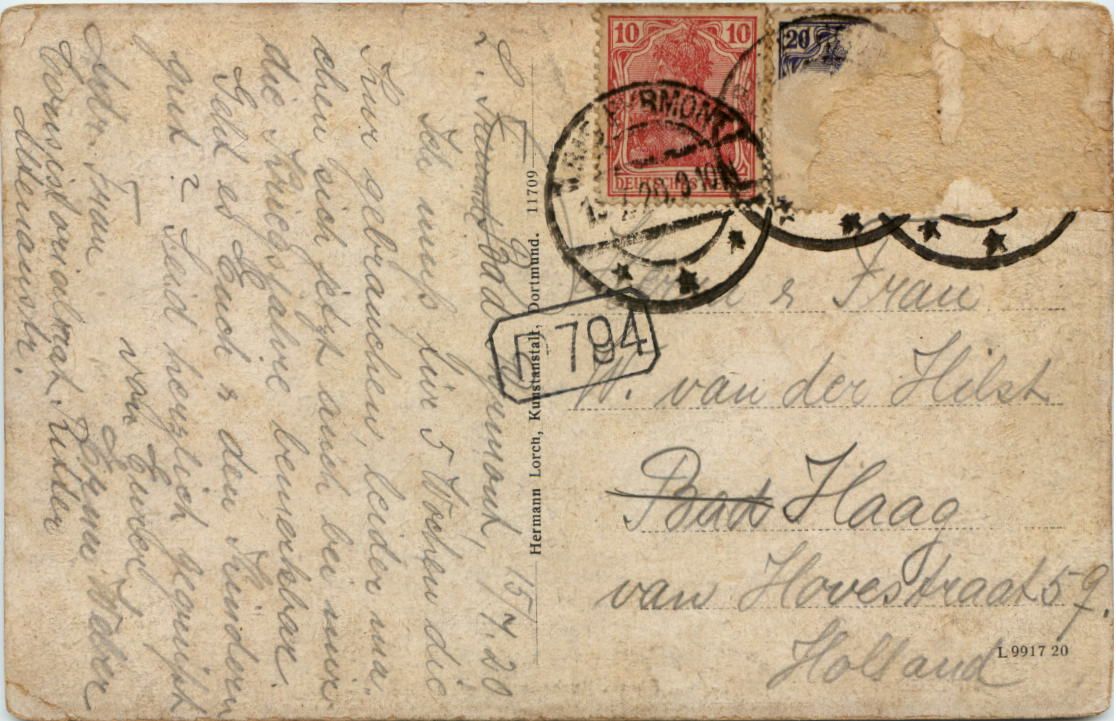 Bad Pyrmont, 15/7.20
Ich muß für 5 Wochen die
Kur gebrauchen, leider ma-
chen sich jetzt auch bei mir
die Kriegsjahre bemerkbar.
Geht es Euch & den Kindern
gut? Seid herzlich gegrüßt
von Eurer
Adr. Frau
Consistorialrat Ritter
Altenaustr.
Hermann Lorch, Kunstanstalt, Dortmund. 11709
10 10
DEUTSCHES
20
PYRMONT
794
& Frau
W. van der Hilst
Bad Haag
van Hovestraat 59.
Holland
L 9917 20